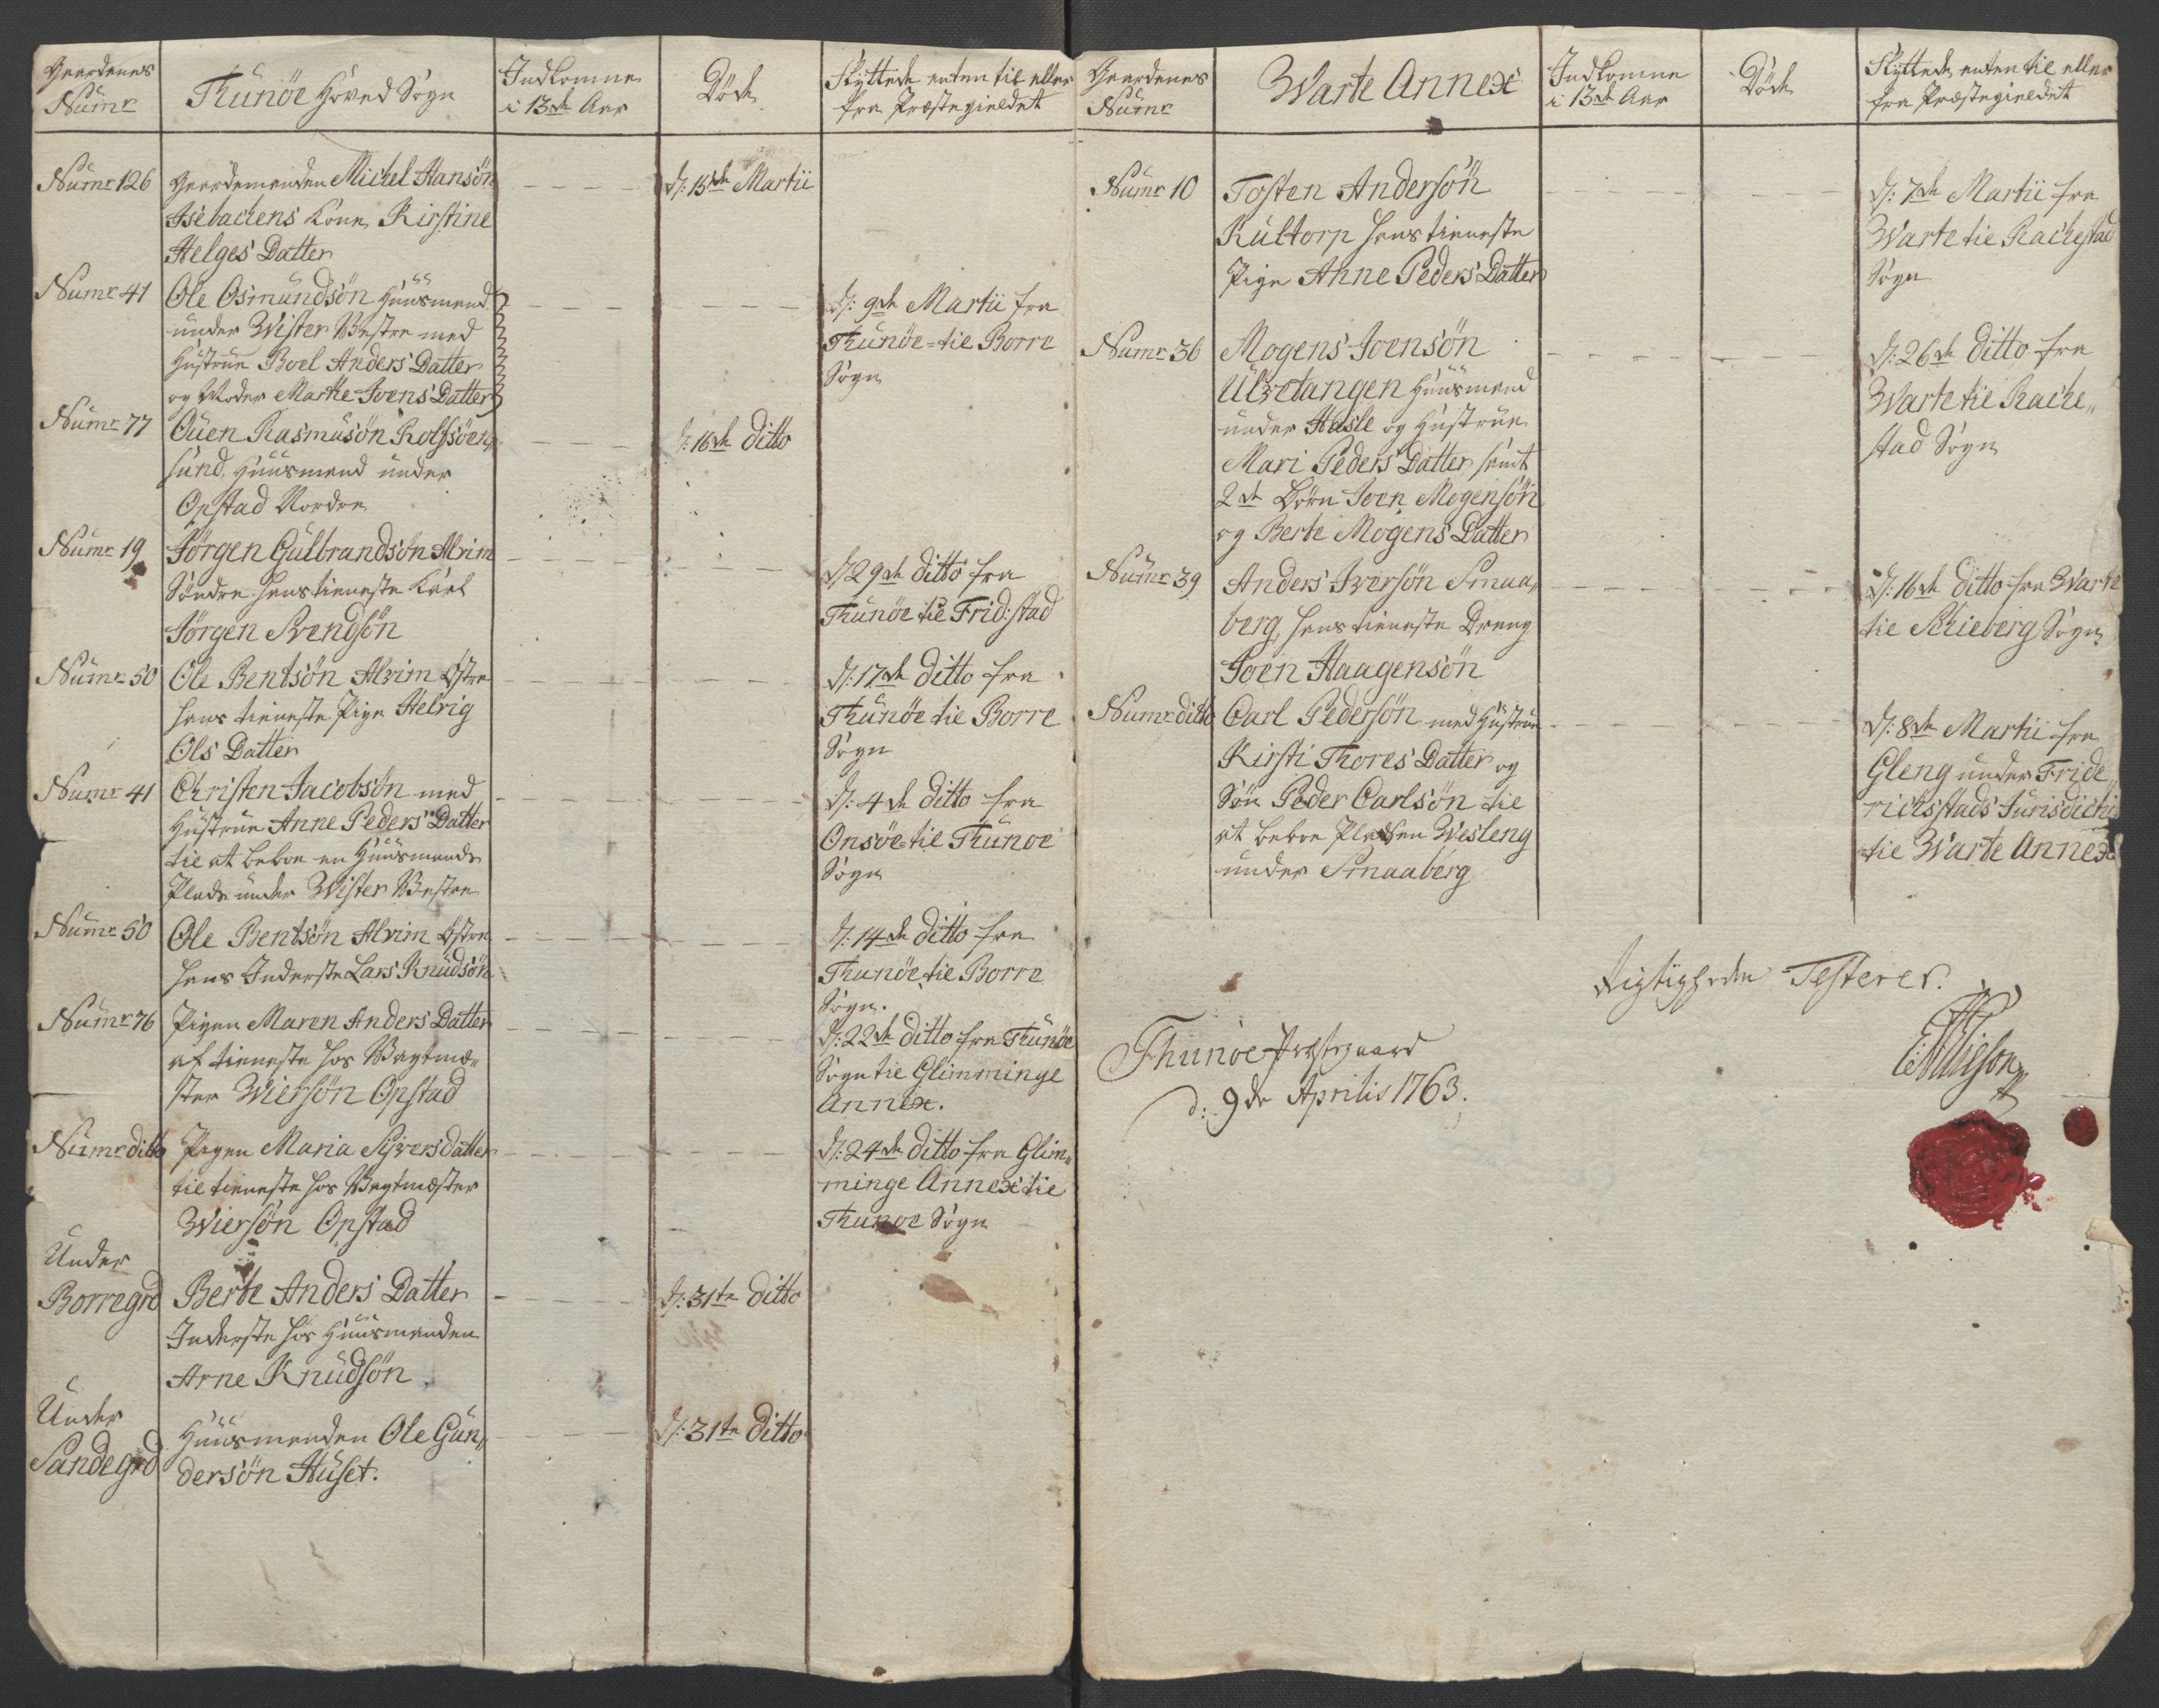 Gaardenes
Numr
Thunöe Hoved Sogn
Indkomne
i 13de Aar
Döde
Flyttede enten til eller
fra Præstegieldet
Numr 126
Gaardemanden Michel Hansön
Isebachens Kone Kirstine
Helges Datter
d: 15de Martii
Numr 41
Ole Osmundsön Huusmand
under Wister Vestre med
Hustrue Boel Anders Datter
og Moder Marthe Joens Datter
d: 9de Martii fra
Thunöe til Borre
Sogn
Numr 77
Ouen Rasmusön Rolfsöen,,
sund. Huusmand under
Opstad Nordre
d: 16de ditto
Numr 19
Jörgen Gulbrandsön Alvim
Söndre hans tieneste Karl
Jörgen Svendsön
d: 29de ditto fra
Thunöe til Frid:stad
Numr 50
Ole Bentsön Alvim Östre
hans tieneste Pige Helvig
Ols Datter
d: 17de ditto fra
Thunöe til Borre
Sogn
Numr 41
Christen Jacobsön med
Hustrue Anne Peders Datter
til at beboe en Huusmands
Plads under Wister Vestre
d: 4de ditto fra
Onsöe til Thunoe
Sogn
Numr 50
Ole Bentsön Alvim Östre
hans Inderste Lars Knudsön
d: 14de ditto fra
Thunöe til Borre
Sogn.
Numr 76
Pigen Maren Anders Datter
af tieneste hos Vagtmæ,,
ster Wiersön Opstad
d: 22de ditto fra Thunöe
Sogn til Glimminge
Annex.
Numr ditto
Pigen Maria Syvers datter
til tieneste hos Vagtmæster
Wiersön Opstad
d: 24de ditto fra Glim,,
minge Annex til
Thunoe Sogn
Under
Borregrd
Berthe Anders Datter
Inderste hos Huusmanden
Arne Knudsön
d: 31te ditto
Under
Sandegrd
Huusmanden Ole Gun,,
dersön Huset.
d: 31te ditto
Gaardenes
Numr
Warte Annex
Indkomne
i 13de Aar
Döde
Flyttede enten til eller
fra Præstegieldet
Numr 10
Tosten Andersön
Kultorp hans tieneste
Pige Anne Peders Datter
d: 7de Martii fra
Warte til Rachestad
Sogn
Numr 36
Mogens Joensön
Ulvetangen Huusmand
under Hasle og Hustrue
Mari Peders Datter samt
2de Börn Joen Mogensön
og Berthe Mogens Datter
d: 26de ditto fra
Warte til Rache,,
stad Sogn
Numr 39
Anders Iversön Smaa,,
berg, hans tieneste Dreng
Joen Haagensön
d: 16de ditto fra Warte
til Schieberg Sogn
Numr ditto
Carl Pedersön med Hustrue
Kirsti Thores Datter og
Sön Peder Carlsön til
at beboe Pladsen Wesleng
under Smaaberg
d: 8de Martii fra
Gleng under Fride,,
richsstads Jurisdiction
til Warte Annex
Rigtigheden Testerer.
Thunöe Præstegaard
d: 9de Aprilis 1763.